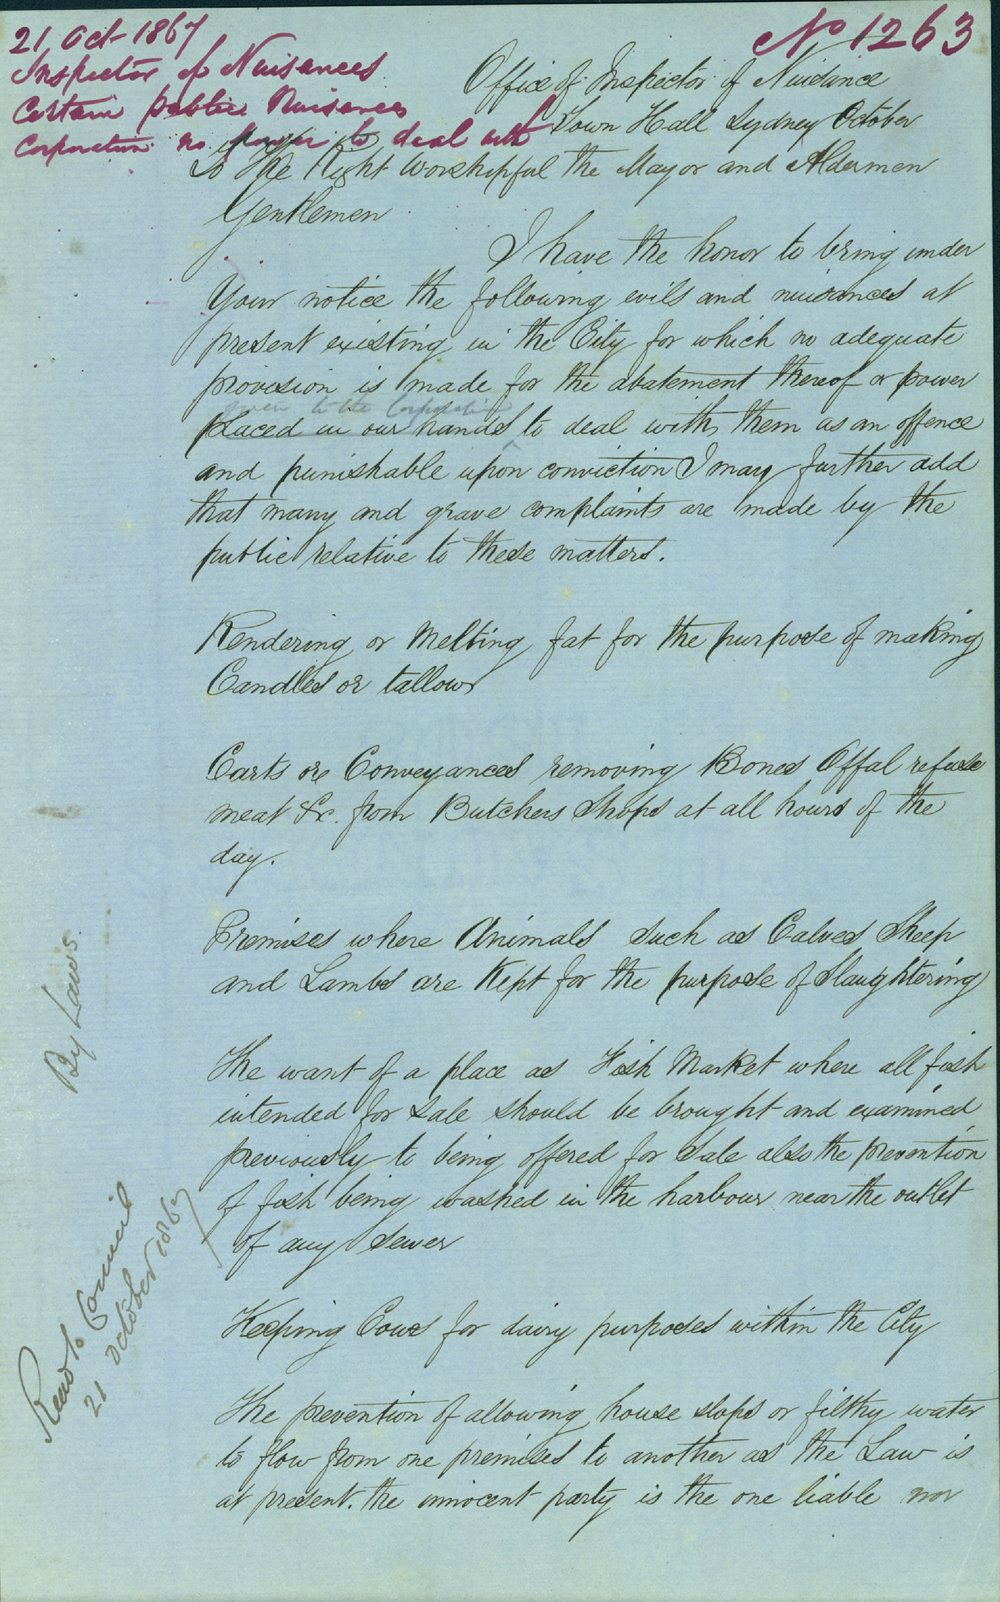 21 Oct 1867
Inspector of Nuisances
Certain public Nuisances
Corporation no power to deal with
No 1263
Office of Inspector of Nuisance
Town Hall Sydney October
To The Right Worshipful the Mayor and Aldermen
Gentlemen
I have the honor to bring under
Your notice the following evils and nuisances at
present existing in the City for which no adequate
provision is made for the abatement thereof or power
given to the Corporation
placed in our hands to deal with them as an offence
and punishable upon conviction I may further add
that many and grave complaints are made by the
public relative to these matters.
Rendering or Melting fat for the purpose of making
Candles or tallow
Carts or Conveyances removing Bones Offal refuse
meat &c. from Butchers Shops at all hours of the
day.
Premises where Animals such as Calves Sheep
and Lambs are Kept for the purpose of Slaughtering
The want of a place as Fish Market where all fish
intended for Sale should be brought and examined
previously to being offered for Sale also the prevention
of fish being washed in the harbour near the outlet
of any Sewer
Keeping Cows for dairy purposes within the City
The prevention of allowing house slops or filthy water
to flow from one premises to another as the Law is
at present. the innocent party is the one liable nor
By Laws.
Read to Council
21 October 1867